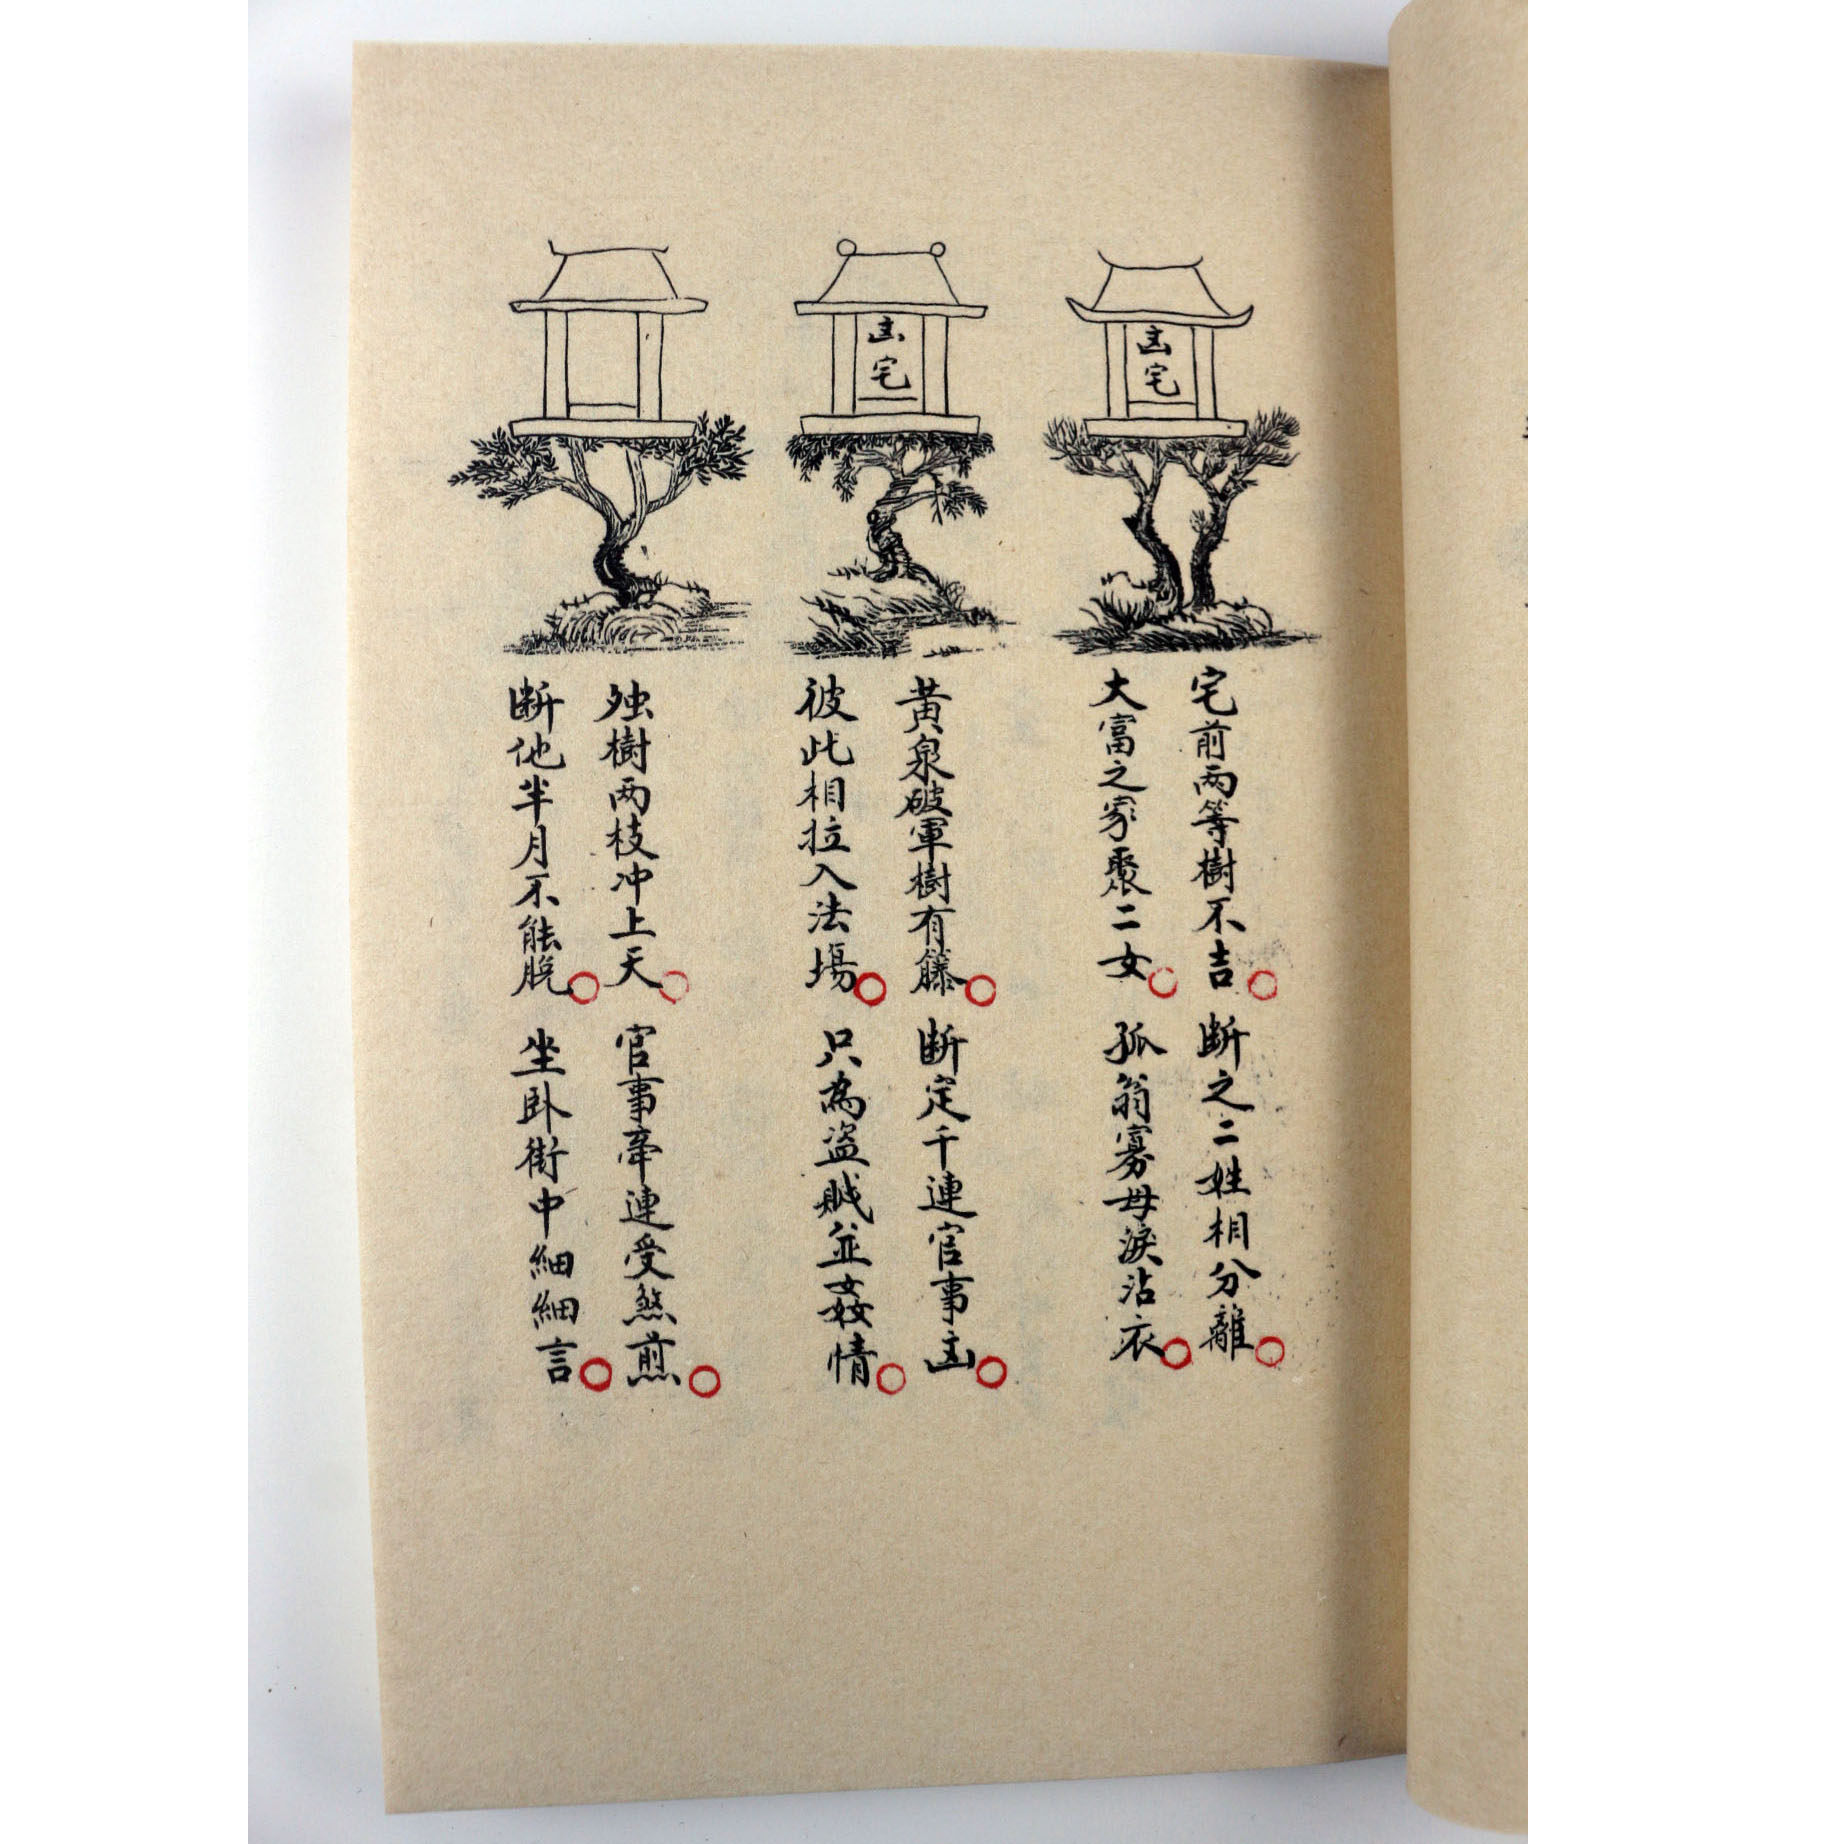 凶宅
宅前两等樹不吉 断之二姓相分離
大富之家聚二女 孤翁寡母淚沾衣
凶宅
黃泉破軍樹有籐 断定千連官事凶
彼此相拉入法場 只為盜賊並姦情
独樹两枝冲上天 官事牽連受煞煎
断他半月不能脫 坐卧街中細細言